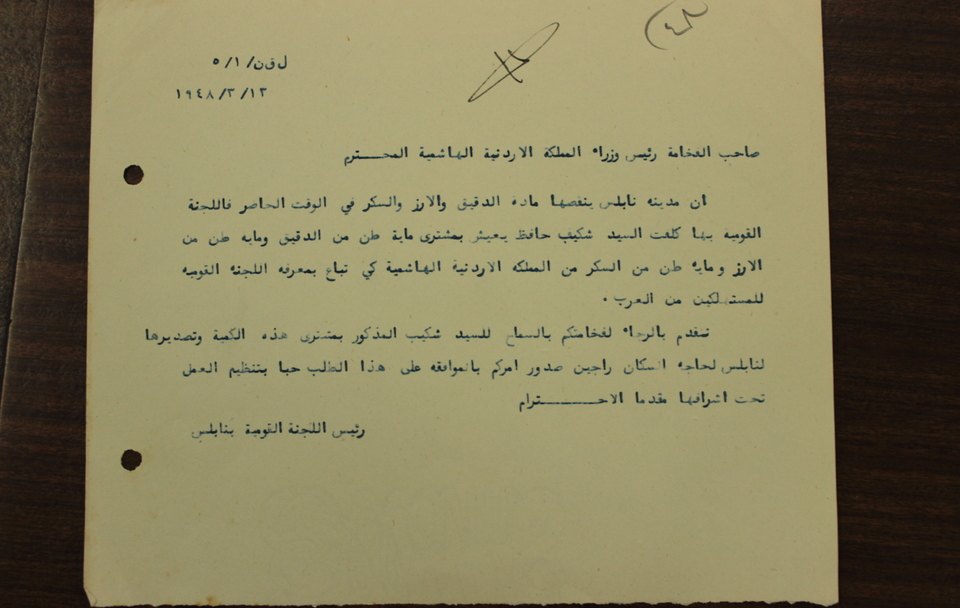 (٤٢)
ل ق ن/ ١/ ٥
١٩٤٨/٣/١٣
صاحب الفخامة رئيس وزراء المملكة الاردنية الهاشمية المحـــــترم
ان مدينه نابلس ينقصها ماده الدقيق والارز والسكر في الوقت الحاضر فاللجنة
القومية بها كلفت السيد شكيب حافظ يعيش بمشترى ماية طن من الدقيق ومايه طن من
الارز ومايه طن من السكر من المملكه الاردنية الهاشمية كي تباع بمعرفه اللجنه القوميه
للمستهلكين من العرب .
نتقدم بالرجاء لفخامتكم بالسماح للسيد شكيب المذكور بمشترى هذه الكمية وتصديرها
لنابلس لحاجه السكان راجين صدور امركم بالموافقه على هذا الطلب حبا بتنظيم العمل
تحت اشرافها مقدما الاحـــــــترام
رئيس اللجنة القومية بنابلس